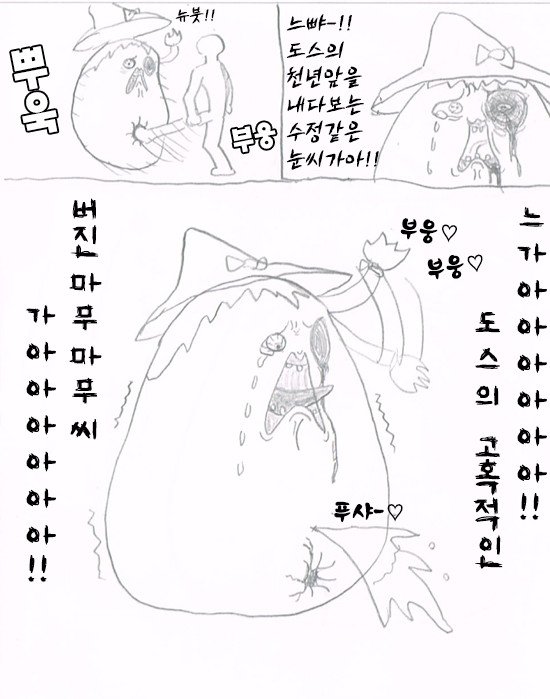 뉴붓!!
부웅
느뺘-!!
도스의
천년앞을
내다보는
수정같은
눈씨가아!!
부웅♡
부웅♡
느가아아아아아아!!
도스의 고혹적인
버진마무마무씨
가아아아아아아!!
푸샤-♡